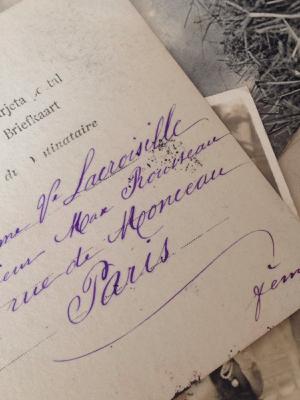 rjeta postal
Briefkaart
du destinataire
me Vve Lacroisille
ieur Max Rousseau
rue de Monceau
Paris